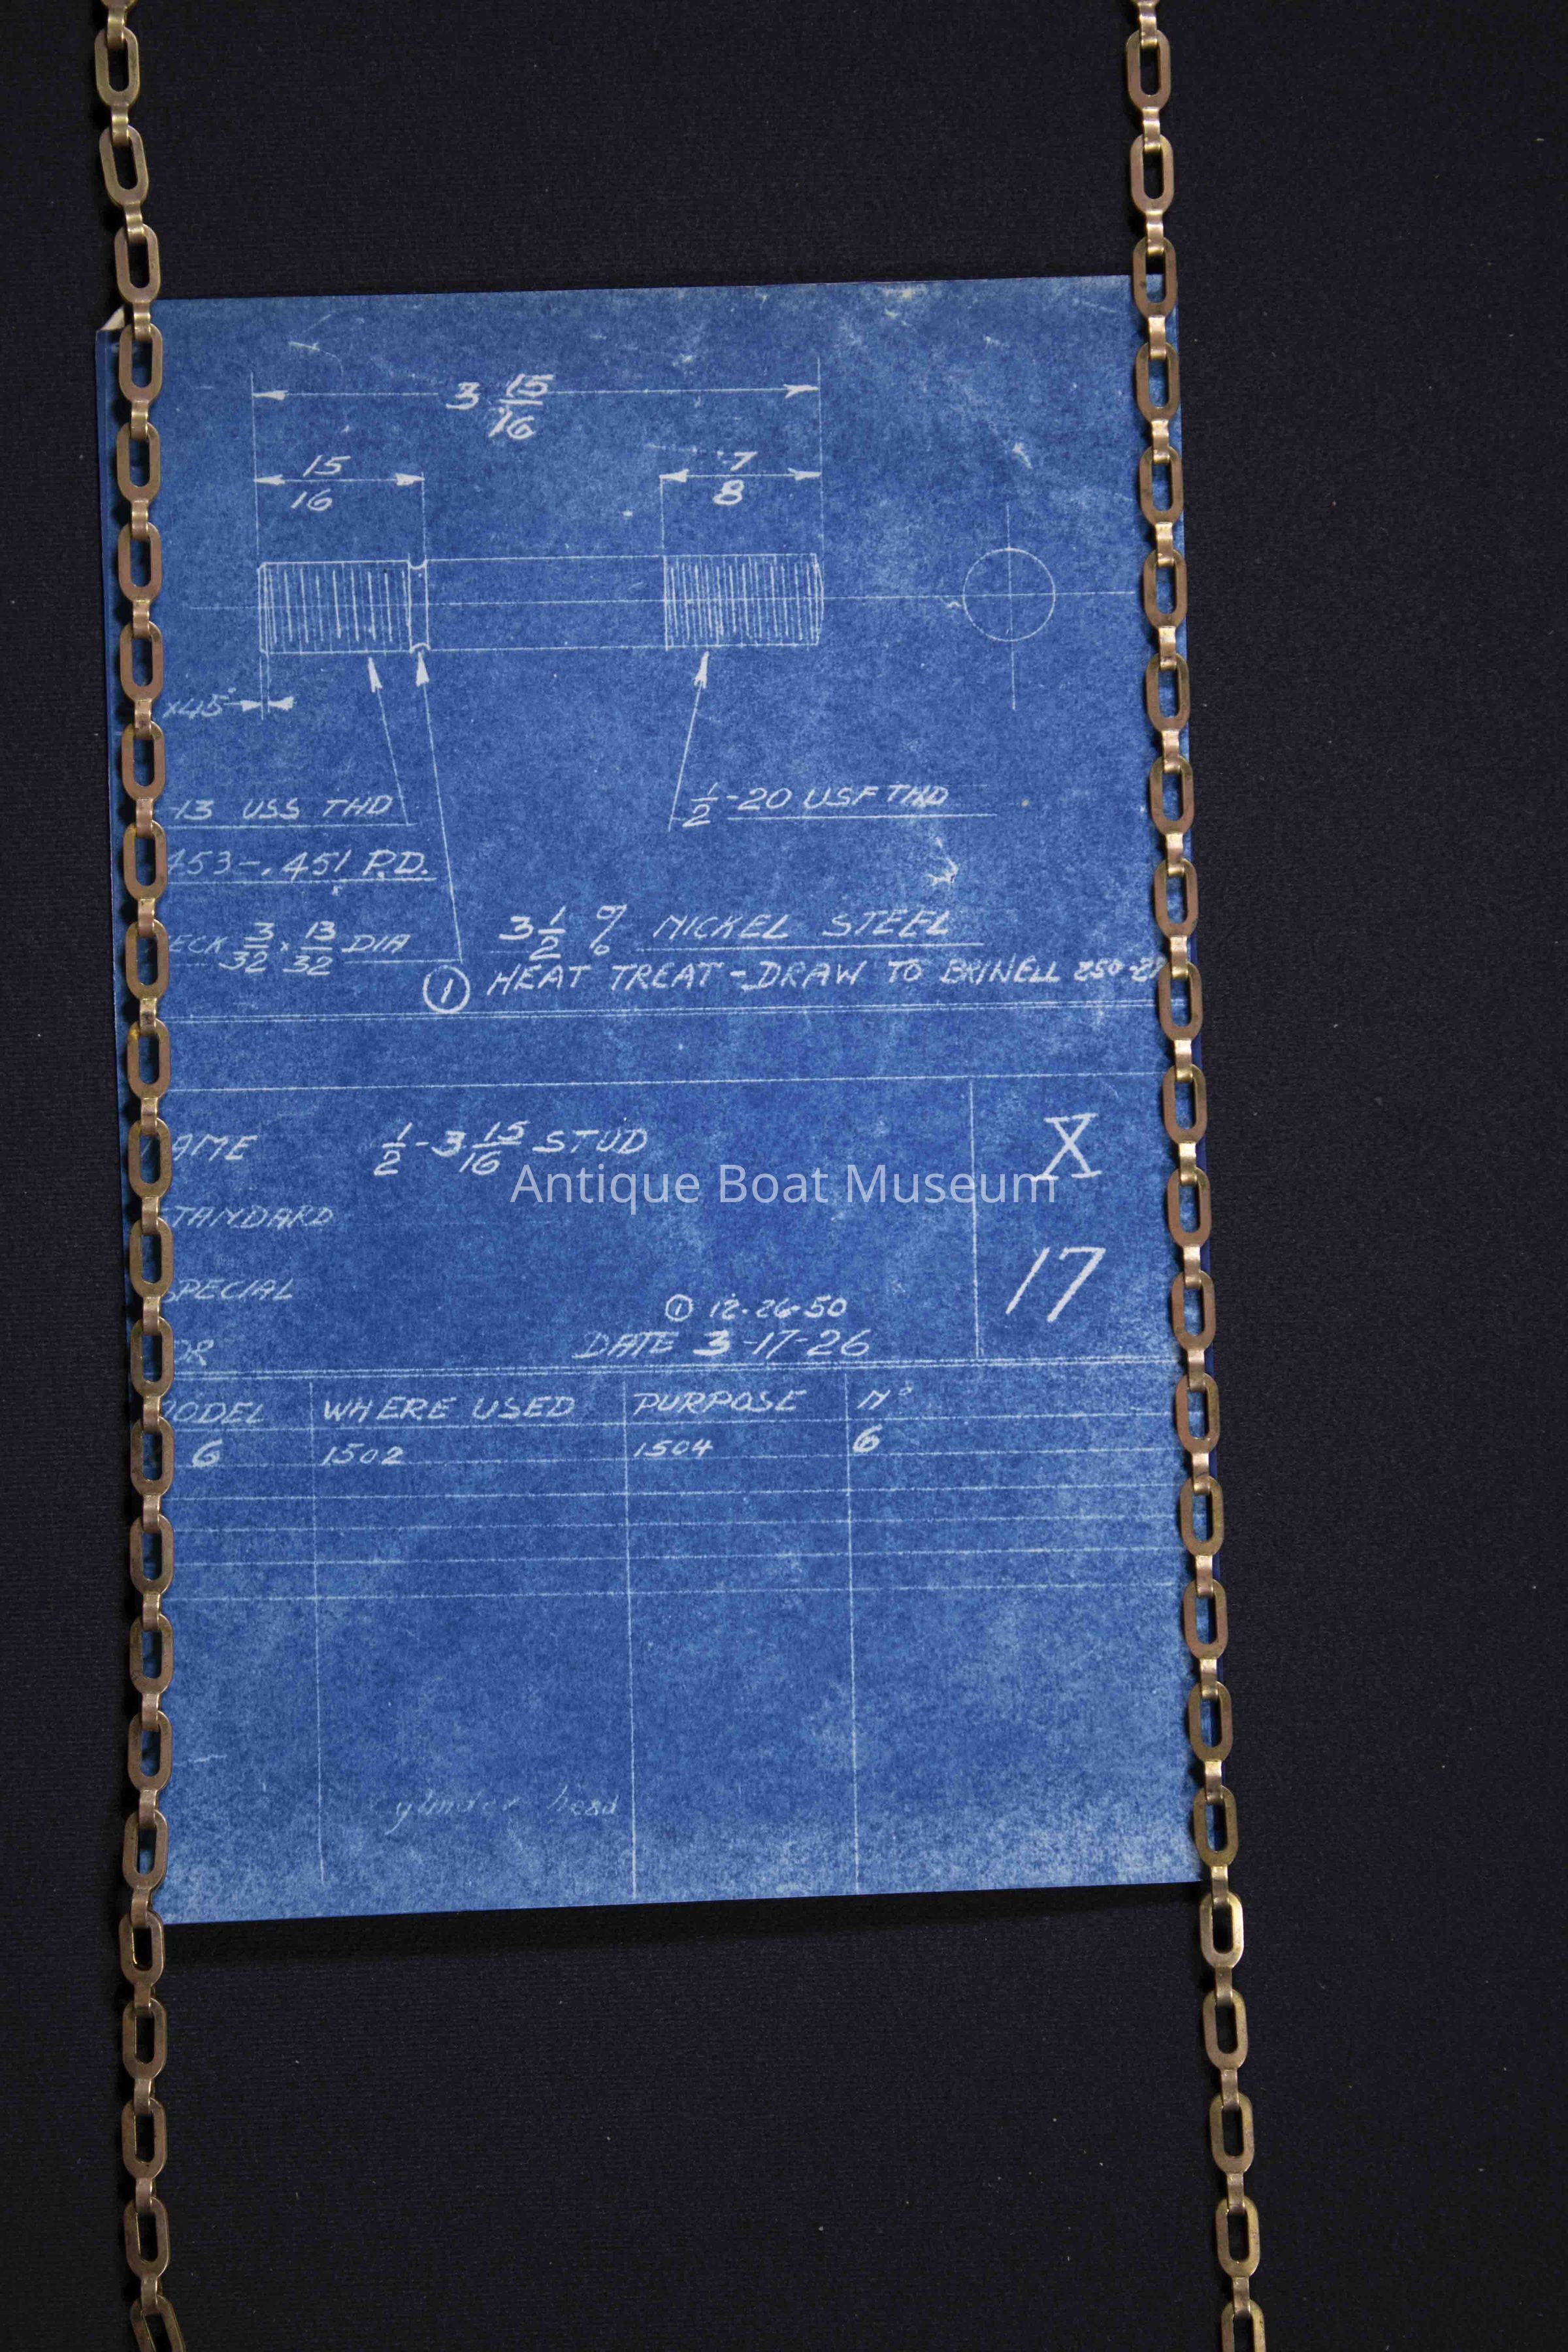 3 15/16
15/16 7/8
x45°
-13 USS THD
1/2-20 USF THD
453-.451 P.D.
ECK 3/32 x 13/32 DIA
3 1/2 % NICKEL STEEL
① HEAT TREAT-DRAW TO BRINELL 250-2
AME 1/2-3 15/16 STUD
X
Antique Boat Museum
TANDARD
17
SPECIAL
① 12-26-50
OR DATE 3-17-26
ODEL WHERE USED PURPOSE Nº
6 1502 1504 6
cylinder head